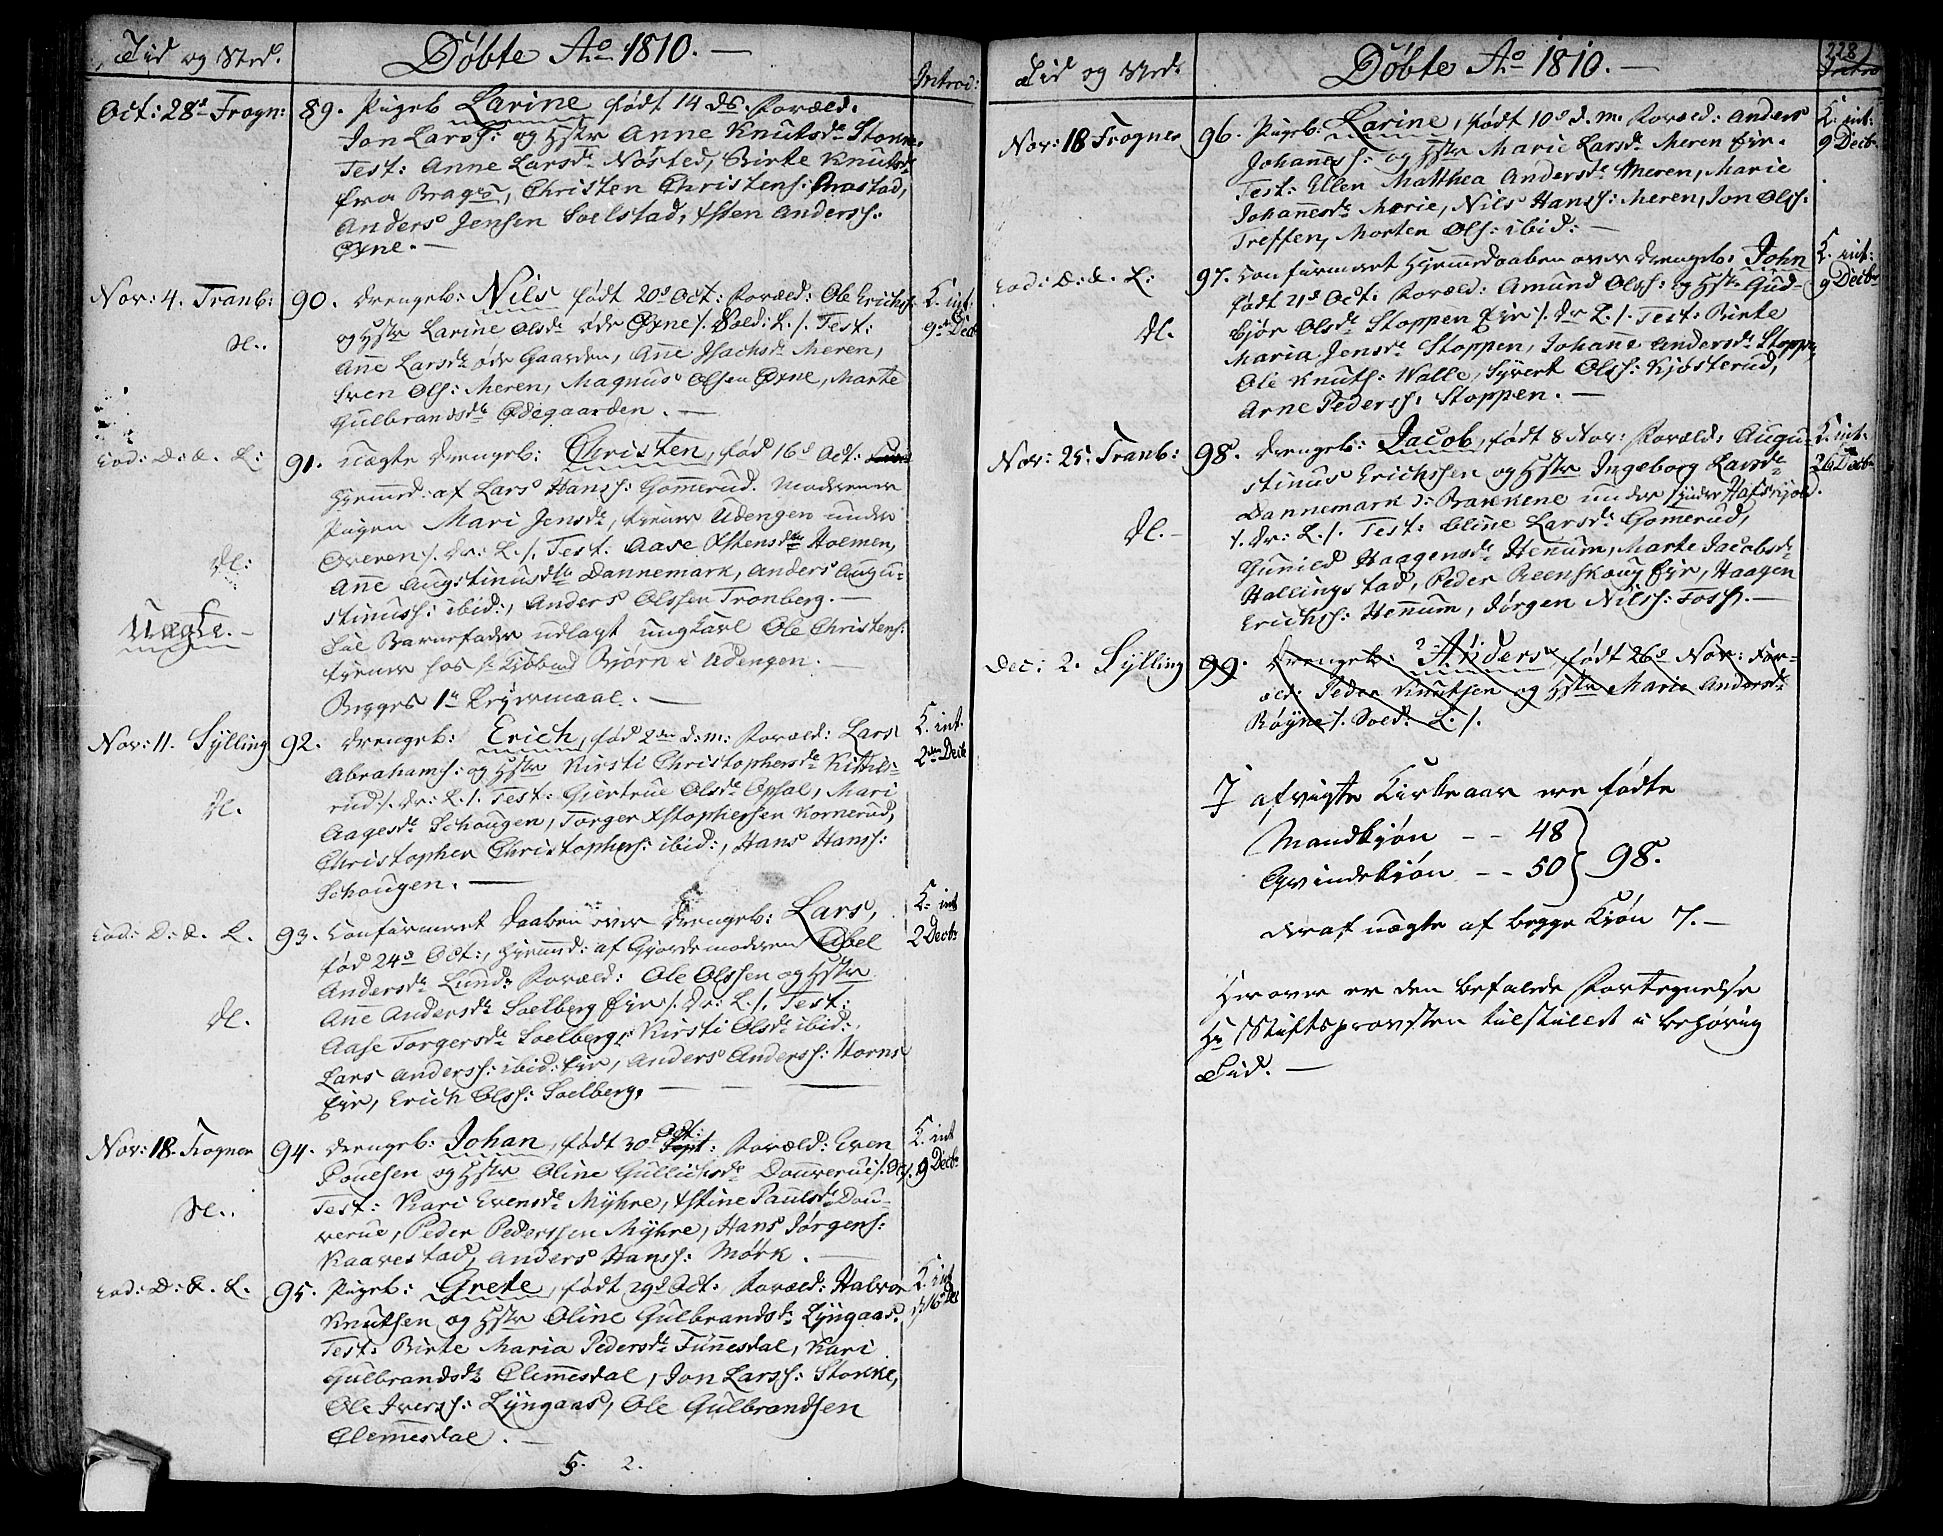 Tid og Sted.
Döbte Aº 1810. —
Introd:
Oct: 28ᵈ Frogn:
89. Pigeb Larine født 14 ds. Foræld.
Jon Larss: og Hstr Anne Knutsdr Storke.
Test: Anne Larsdr Nøsted, Birte Knutsdr
fra Bragn, Christen Christens: Grastad,
Anders Jensen Soelstad, Xsten Anderss:
Øxne. —
Nov: 4. Tranb:
90. Drengeb: Nils født 20ᵈ Oct: Foræld: Ole Erichs:
og Hstr Larine Olsdr øde Øxne /. Sold: L. /. Test:
Ane Larsdr øde Gaarden, Ane Isachsdr Meren,
Sven Ols: Meren, Magnus Olsen Øxne, Marte
Gulbrandsdr Ødegaarden. —
K. int:
9de Decb
dl.
eod: D: & L:
91. Uægte Drengeb: Christen, fød 16ᵈ Oct:
Hjemd: af Lars Hanss: Gomerud. Moderen
Pigen Mari Jensdr, tjener Udengen under
Overen /. Dr: L. /. Test: Aase Xstensdr Holmen,
Ane Augstinusdr Dannemark, Anders Augu-
stinuss: ibid:, Anders Olssen Tronberg. —
Til Barnefader udlagt ungkarl Ole Christens:
tjener hos Bjørn i Udengen. —
Begges 1te Leyermaal. —
dl:
Uægte. —
Nov: 11. Sylling
92. Drengeb: Erich, fød 2den d: m: Foræld: Lars
Abrahams: og Hstr Kirsti Christophersdr Kittils-
rud /. Dr: L. /. Test: Giertrue Olsdr Opsal, Mari
Aagesdr Schougen, Torger Xstophersen Kornerud,
Christopher Christophers: ibid:, Hans Hanss:
Schougen. —
K. int.
2den Decb
dl.
eod: D: & L.
93. Confirmeret Daaben over Drengeb: Lars,
fød 24ᵈ Oct:, Hjemd: af Gjordemoderen Abel
Andersdr Lund. Foræld: Ole Olssen og Hstr
Ane Andersdr Soelberg Eje /. Dr: L. /. Test:
Aase Torgersdr Soelberg, Kirsti Olsdr ibid:,
Lars Anderss: ibid: Eje, Anders Anderss: Horns
Eje, Erich Olss: Soelberg. —
K. int
2 Decb:
dl.
Nov: 18. Frogner
94. Drengeb: Johan, født 30ᵈ Oct: Foræld: Even
Poulsen og Hstr Oline Gullichsdr Douverue /. Dr /.
Test: Kari Evensdr Myhre, Xstine Paulsdr Dou-
verue, Peder Pederssen Myhre, Hans Jørgens:
Kaarestad, Anders Hanss: Mörk. —
K. int
9 Decb:
dl.
eod: D: & L.
95. Pigeb: Grete, født 29ᵈ Oct: Foræld: Halvor
Knutsen og Hstr Oline Gulbrandsdr Lyngaas.
Test: Birte Maria Pedersdr Tünesdal, Kari
Gulbrandsdr Clemesdal, Jon Larss: Storke,
Ole Iverss: Lyngaas, Ole Gulbrandsen
Clemesdal. —
K. int
d. 16 Dec
5. 2.
Tid og Sted.
Döbte Aº 1810. —
228
Intro
Nov: 18 Frogner
96. Pigeb: Karine, født 10ᵈ d. m. Foræld: Anders
Johaness: og Hstr Marie Larsdr Meren Eje.
Test: Ellen Matthea Andersdr Meren, Marie
Johanesdr Merie, Nils Hanss: Meren, Jon Olss:
Treffen, Morten Ols: ibid: —
K. int:
9 Decb.
eod: D: & L:
97. Confirmeret Hjemmedaaben over Drengeb: John
født 21ᵈ Oct: Foræld: Amund Olss: og Hstr Gud-
bjør Olsdr Stoppen Eje /. Dr L. /. Test: Birte
Maria Jensdr Stoppen, Johane Andersdr Stoppn,
Ole Knuts: Walle, Syvert Olss: Kjøsterud,
Arne Pederss: Stoppen. —
K. int:
9 Decb:
dl.
Nov: 25. Tranb:
98. Drengeb: Jacob, født 8 Nov: Foræld: Augu-
stinus Erichssen og Hstr Ingeborg Larsdr
Dannemark ɔ: Bakkene under Hafskjold.
/. Dr: L. /. Test: Oline Larsdr Gomerud,
Gunild Haagensdr Henum, Marte Jacobsdr
Hallingstad, Peder Reenskoug Eje, Haagen
Erichss: Henum, Jörgen Nilss: Foss. —
K. int:
26 Decb:
dl. —
Dec: 2. Sylling
99. Drengeb: Anders, født 26ᵈ Nov: For-
æld: Peder Knutsen og Hstr Marie Andersdr
Röyne /. Sold: L. /.
I afvigte Kirkeaar ere fødte
Mandkjøn - - 48
Qvindekjøn - - 50
98.
deraf uægte af begge Kjøn 7. —
Herover er den befalede Fortegnelse
Hr Stiftsprovsten tilstillet i behørig
Tid. —